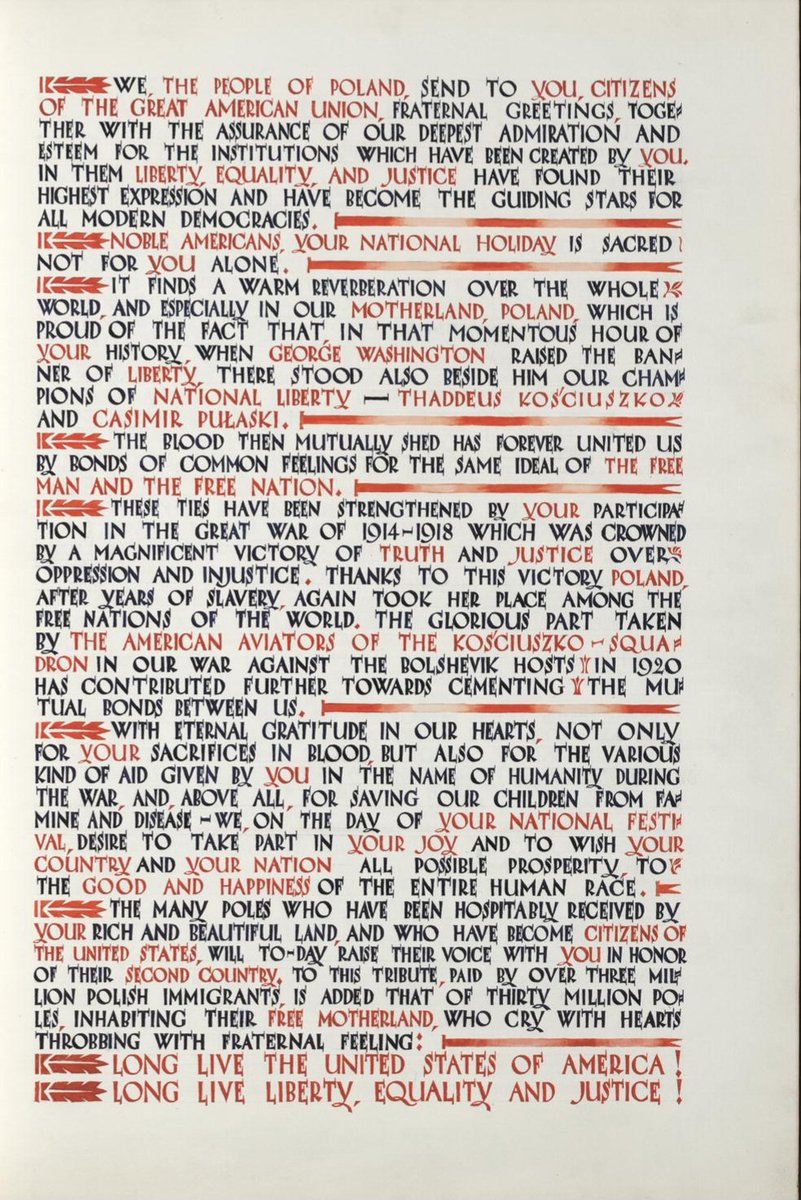 WE, THE PEOPLE OF POLAND, SEND TO YOU, CITIZENS
OF THE GREAT AMERICAN UNION, FRATERNAL GREETINGS, TOGE-
THER WITH THE ASSURANCE OF OUR DEEPEST ADMIRATION AND
ESTEEM FOR THE INSTITUTIONS WHICH HAVE BEEN CREATED BY YOU.
IN THEM LIBERTY, EQUALITY, AND JUSTICE HAVE FOUND THEIR
HIGHEST EXPRESSION AND HAVE BECOME THE GUIDING STARS FOR
ALL MODERN DEMOCRACIES.
NOBLE AMERICANS, YOUR NATIONAL HOLIDAY IS SACRED
NOT FOR YOU ALONE.
IT FINDS A WARM REVERBERATION OVER THE WHOLE
WORLD, AND ESPECIALLY IN OUR MOTHERLAND, POLAND, WHICH IS
PROUD OF THE FACT THAT, IN THAT MOMENTOUS HOUR OF
YOUR HISTORY, WHEN GEORGE WASHINGTON RAISED THE BAN-
NER OF LIBERTY, THERE STOOD ALSO BESIDE HIM OUR CHAM-
PIONS OF NATIONAL LIBERTY — THADDEUS KOŚCIUSZKO
AND CASIMIR PUŁASKI.
THE BLOOD THEN MUTUALLY SHED HAS FOREVER UNITED US
BY BONDS OF COMMON FEELINGS FOR THE SAME IDEAL OF THE FREE
MAN AND THE FREE NATION.
THESE TIES HAVE BEEN STRENGTHENED BY YOUR PARTICIPA-
TION IN THE GREAT WAR OF 1914-1918 WHICH WAS CROWNED
BY A MAGNIFICENT VICTORY OF TRUTH AND JUSTICE OVER
OPPRESSION AND INJUSTICE. THANKS TO THIS VICTORY POLAND,
AFTER YEARS OF SLAVERY, AGAIN TOOK HER PLACE AMONG THE
FREE NATIONS OF THE WORLD. THE GLORIOUS PART TAKEN
BY THE AMERICAN AVIATORS OF THE KOŚCIUSZKO-SQUA-
DRON IN OUR WAR AGAINST THE BOLSHEVIK HOSTS IN 1920
HAS CONTRIBUTED FURTHER TOWARDS CEMENTING THE MU-
TUAL BONDS BETWEEN US.
WITH ETERNAL GRATITUDE IN OUR HEARTS, NOT ONLY
FOR YOUR SACRIFICES IN BLOOD, BUT ALSO FOR THE VARIOUS
KIND OF AID GIVEN BY YOU IN THE NAME OF HUMANITY DURING
THE WAR, AND, ABOVE ALL, FOR SAVING OUR CHILDREN FROM FA-
MINE AND DISEASE - WE, ON THE DAY OF YOUR NATIONAL FESTI-
VAL, DESIRE TO TAKE PART IN YOUR JOY AND TO WISH YOUR
COUNTRY AND YOUR NATION ALL POSSIBLE PROSPERITY, TO
THE GOOD AND HAPPINESS OF THE ENTIRE HUMAN RACE.
THE MANY POLES WHO HAVE BEEN HOSPITABLY RECEIVED BY
YOUR RICH AND BEAUTIFUL LAND, AND WHO HAVE BECOME CITIZENS OF
THE UNITED STATES, WILL TO-DAY RAISE THEIR VOICE WITH YOU IN HONOR
OF THEIR SECOND COUNTRY. TO THIS TRIBUTE, PAID BY OVER THREE MIL-
LION POLISH IMMIGRANTS, IS ADDED THAT OF THIRTY MILLION PO-
LES, INHABITING THEIR FREE MOTHERLAND, WHO CRY WITH HEARTS
THROBBING WITH FRATERNAL FEELING:
LONG LIVE THE UNITED STATES OF AMERICA!
LONG LIVE LIBERTY, EQUALITY AND JUSTICE!